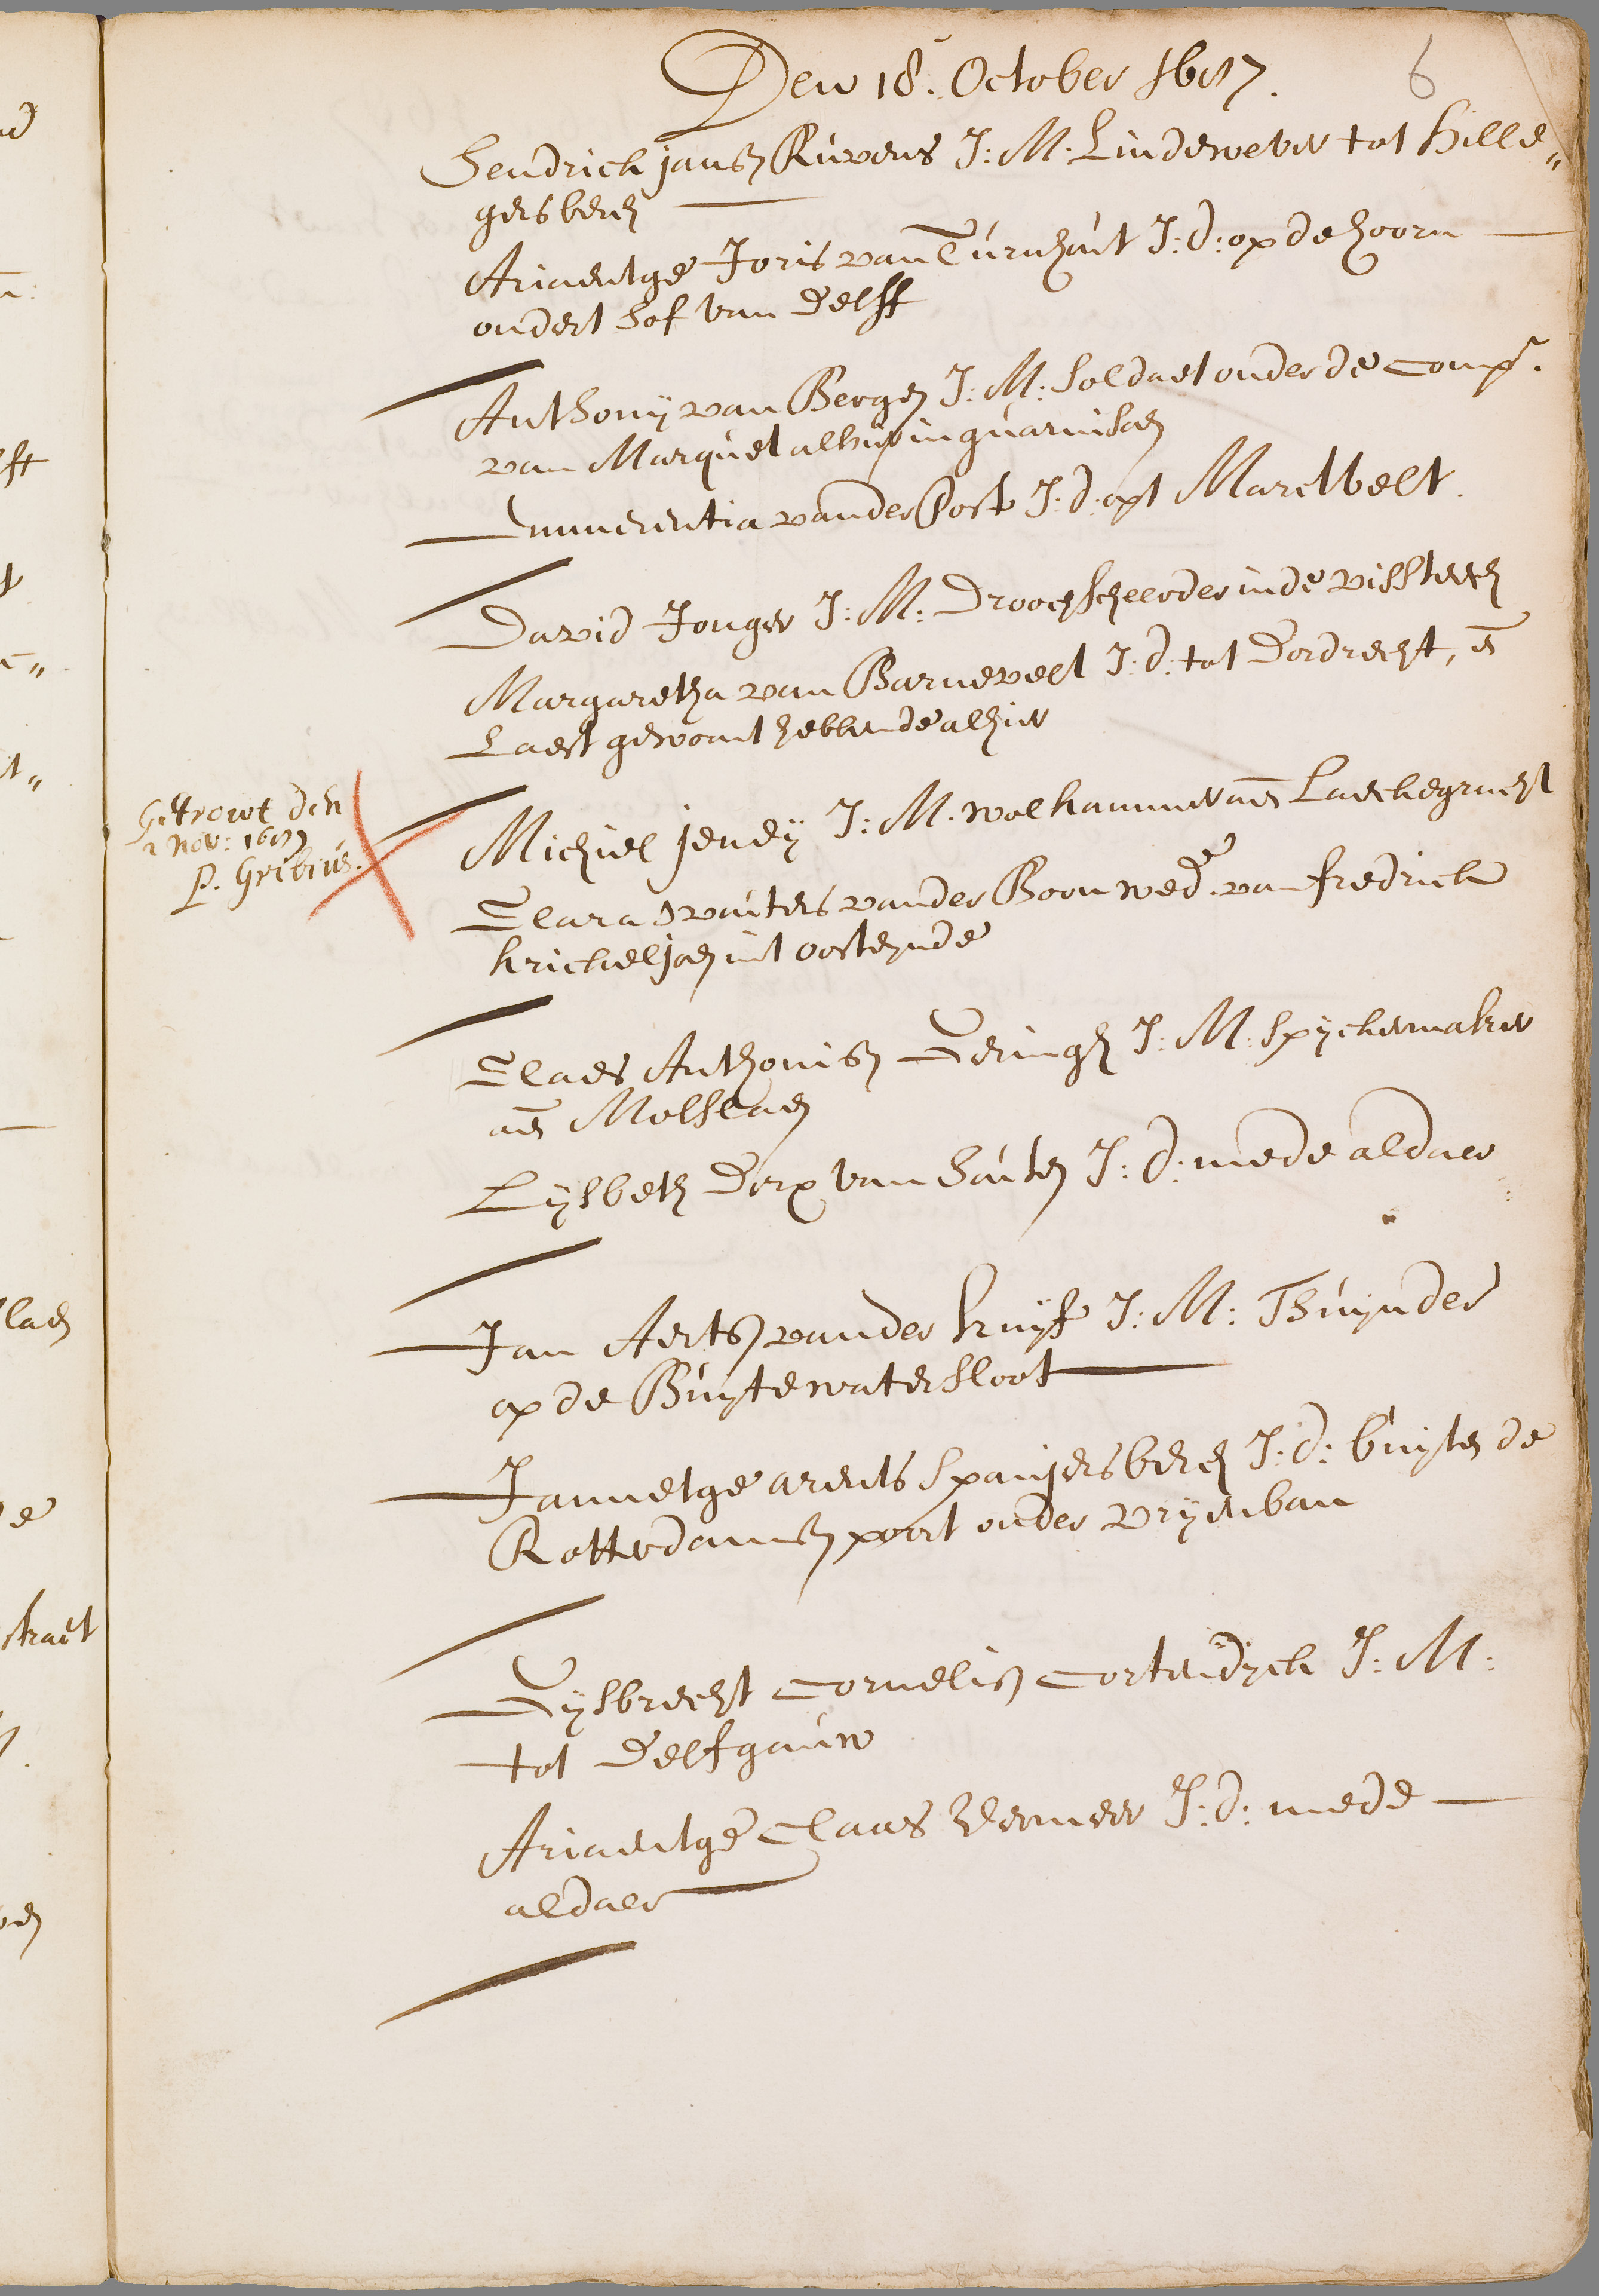 Den 18. October 1657.
6
Hendrick jansz Ruvens J: M. Lindewever tot Hille„
gersberch
Ariaentge Joris van Turnhout J: d: op de hoorn
ondert hof van Delff
Anthonij van Bergen J: M: Soldaet onder de Comp.
van Marquet alhier in guarnisoen
Emerentia vander Post J: d: opt Marctvelt.
David Jonger J: M: Droochscheerder inde vissteech
Margaretha van Barnevelt J: d: tot Dordrecht, en
Laest gewoont hebbende alhier
Getrowt den
2 Nov: 1657
P. Gribius.
Michiel jendy J: M. wolkammer aen Laeckegracht
Clara Wouters vander Boon wed.e van fredrick
krickeljoen int oosteynde
Claes Anthonisz Geringh J: M: Spijckermaker
aen Molslaen
Lijsbeth Dirx van Houten J: d: mede aldaer
Jan Aertsz vander kruijf J: M: Thuynder
op de Buytewatersloot
Jannetge arents Spanjersberch J: d: buyten de
Rotterdamsz poort onder vrijenban
Gijsbrecht Cornelisz Cortendijck J: M:
tot Delfgauw
Ariaentge Claas Vermeer J: d: mede
aldaer